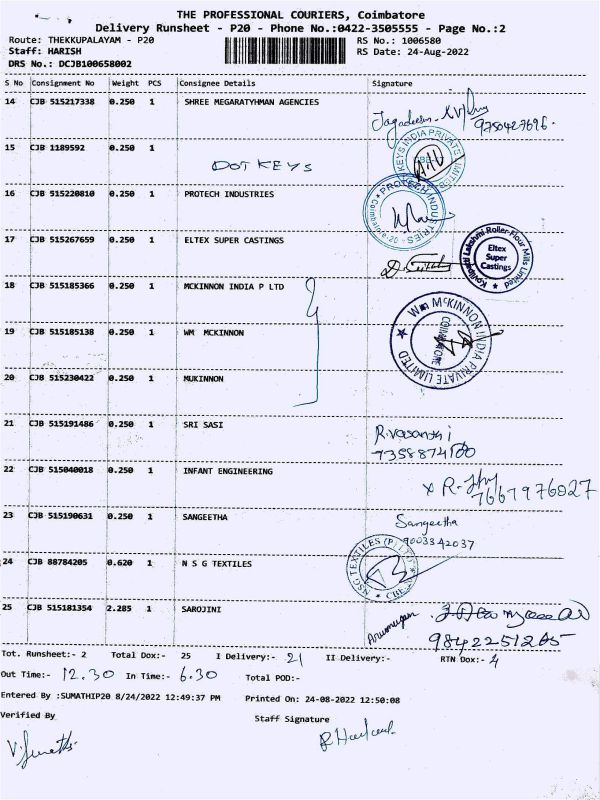 THE PROFESSIONAL COURIERS, Coimbatore
Delivery Runsheet - P20 - Phone No.:0422-3505555 - Page No.:2
Route: THEKKUPALAYAM - P20 RS No.: 1006580
Staff: HARISH RS Date: 24-Aug-2022
DRS No.: DCJB100658002
S No Consignment No Weight PCS Consignee Details Signature
14 CJB 515217338 0.250 1 SHREE MEGARATYHMAN AGENCIES
9750427696.
15 CJB 1189592 0.250 1 DOT KEYS
KEYS INDIA PRIVATE LIMITED
16 CJB 515220810 0.250 1 PROTECH INDUSTRIES
PROTECH INDUSTRIES
Coimbatore-20
17 CJB 515267659 0.250 1 ELTEX SUPER CASTINGS
Lakshmi Roller Flour Mills Limited
Eltex
Super
Castings
18 CJB 515185366 0.250 1 MCKINNON INDIA P LTD
19 CJB 515185138 0.250 1 WM MCKINNON
Wm MCKINNON INDIA PRIVATE LIMITED
COIMBATORE
20 CJB 515230422 0.250 1 MUKINNON
21 CJB 515191486 0.250 1 SRI SASI
R.Vasanthi
22 CJB 515040018 0.250 1 INFANT ENGINEERING
7667976027
23 CJB 515190631 0.250 1 SANGEETHA
Sangeetha
9003342037
24 CJB 88784205 0.620 1 N S G TEXTILES
NSG TEXTILES (P) LTD
CBE
25 CJB 515181354 2.285 1 SAROJINI
Arumugam
9842251265
Tot. Runsheet:- 2 Total Dox:- 25 I Delivery:- 21 II Delivery:- RTN Dox:- 4
Out Time:- 12.30 In Time:- 6.30 Total POD:-
Entered By :SUMATHIP20 8/24/2022 12:49:37 PM Printed On: 24-08-2022 12:50:08
Verified By Staff Signature